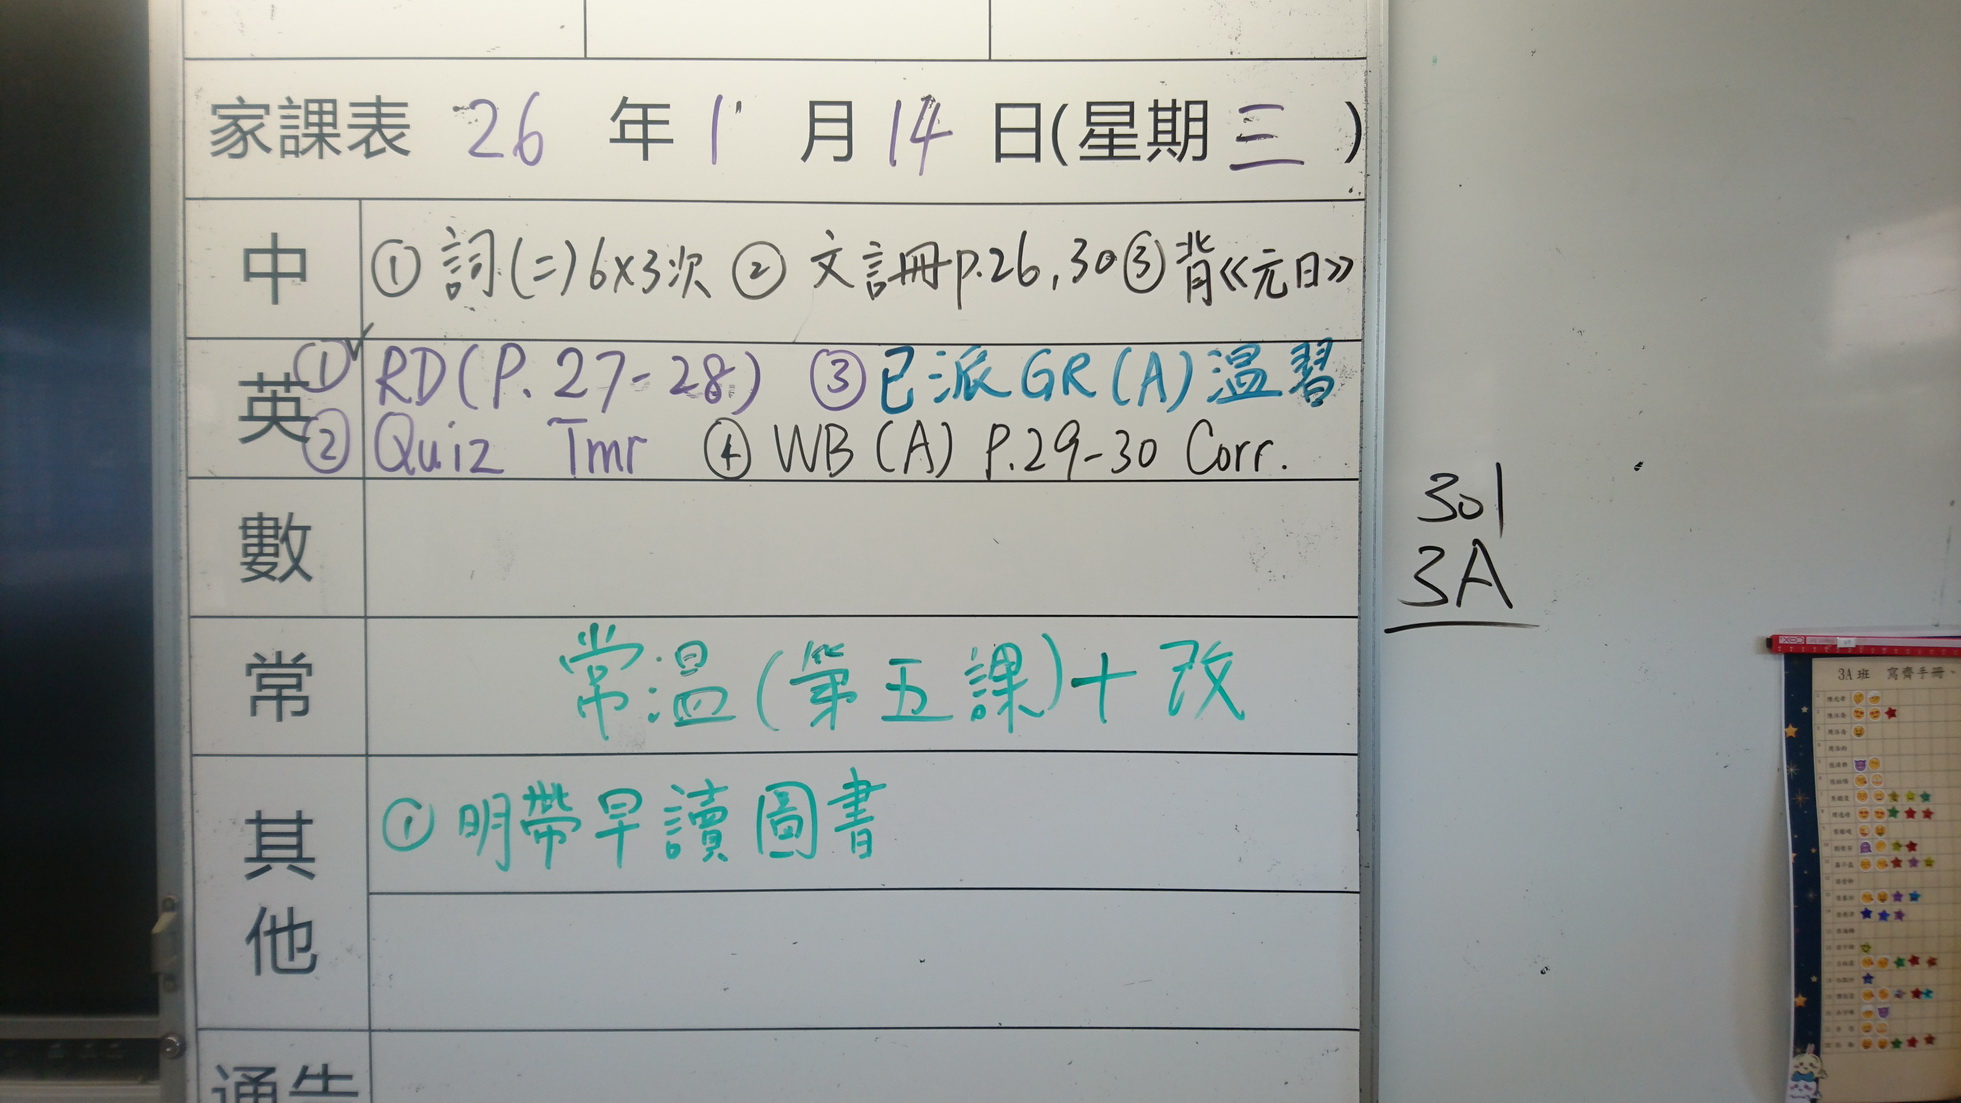 家課表 26 年 1 月 14 日(星期 三 )
中 ① 詞(二)6x3次 ② 文言冊p.26,30 ③ 背《元日》
英 ① RD(P.27-28) ③ 已派GR(A)溫習
② Quiz Tmr ④ WB(A) P.29-30 Corr.
數
常 常溫(第五課)+改
其他 ① 明帶早讀圖書
通告
301
3A
3A班 寫齊手冊